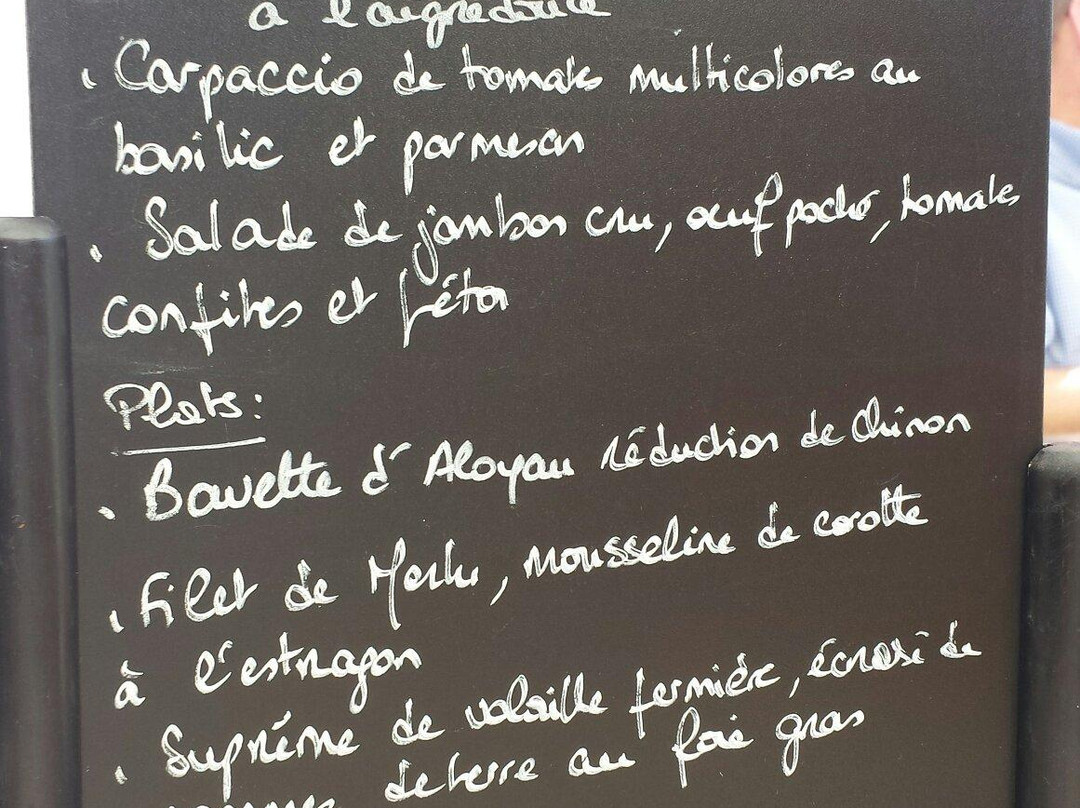 à l'aigredouce
• Carpaccio de tomates multicolores au
basilic et parmesan
• Salade de jambon cru, œuf poché, tomates
confites et féta
Plats:
• Bavette d'Aloyau réduction de Chinon
• Filet de Merlu, mousseline de carotte
à l'estragon
• Suprême de volaille fermière, écrasé de
pommes de terre au foie gras